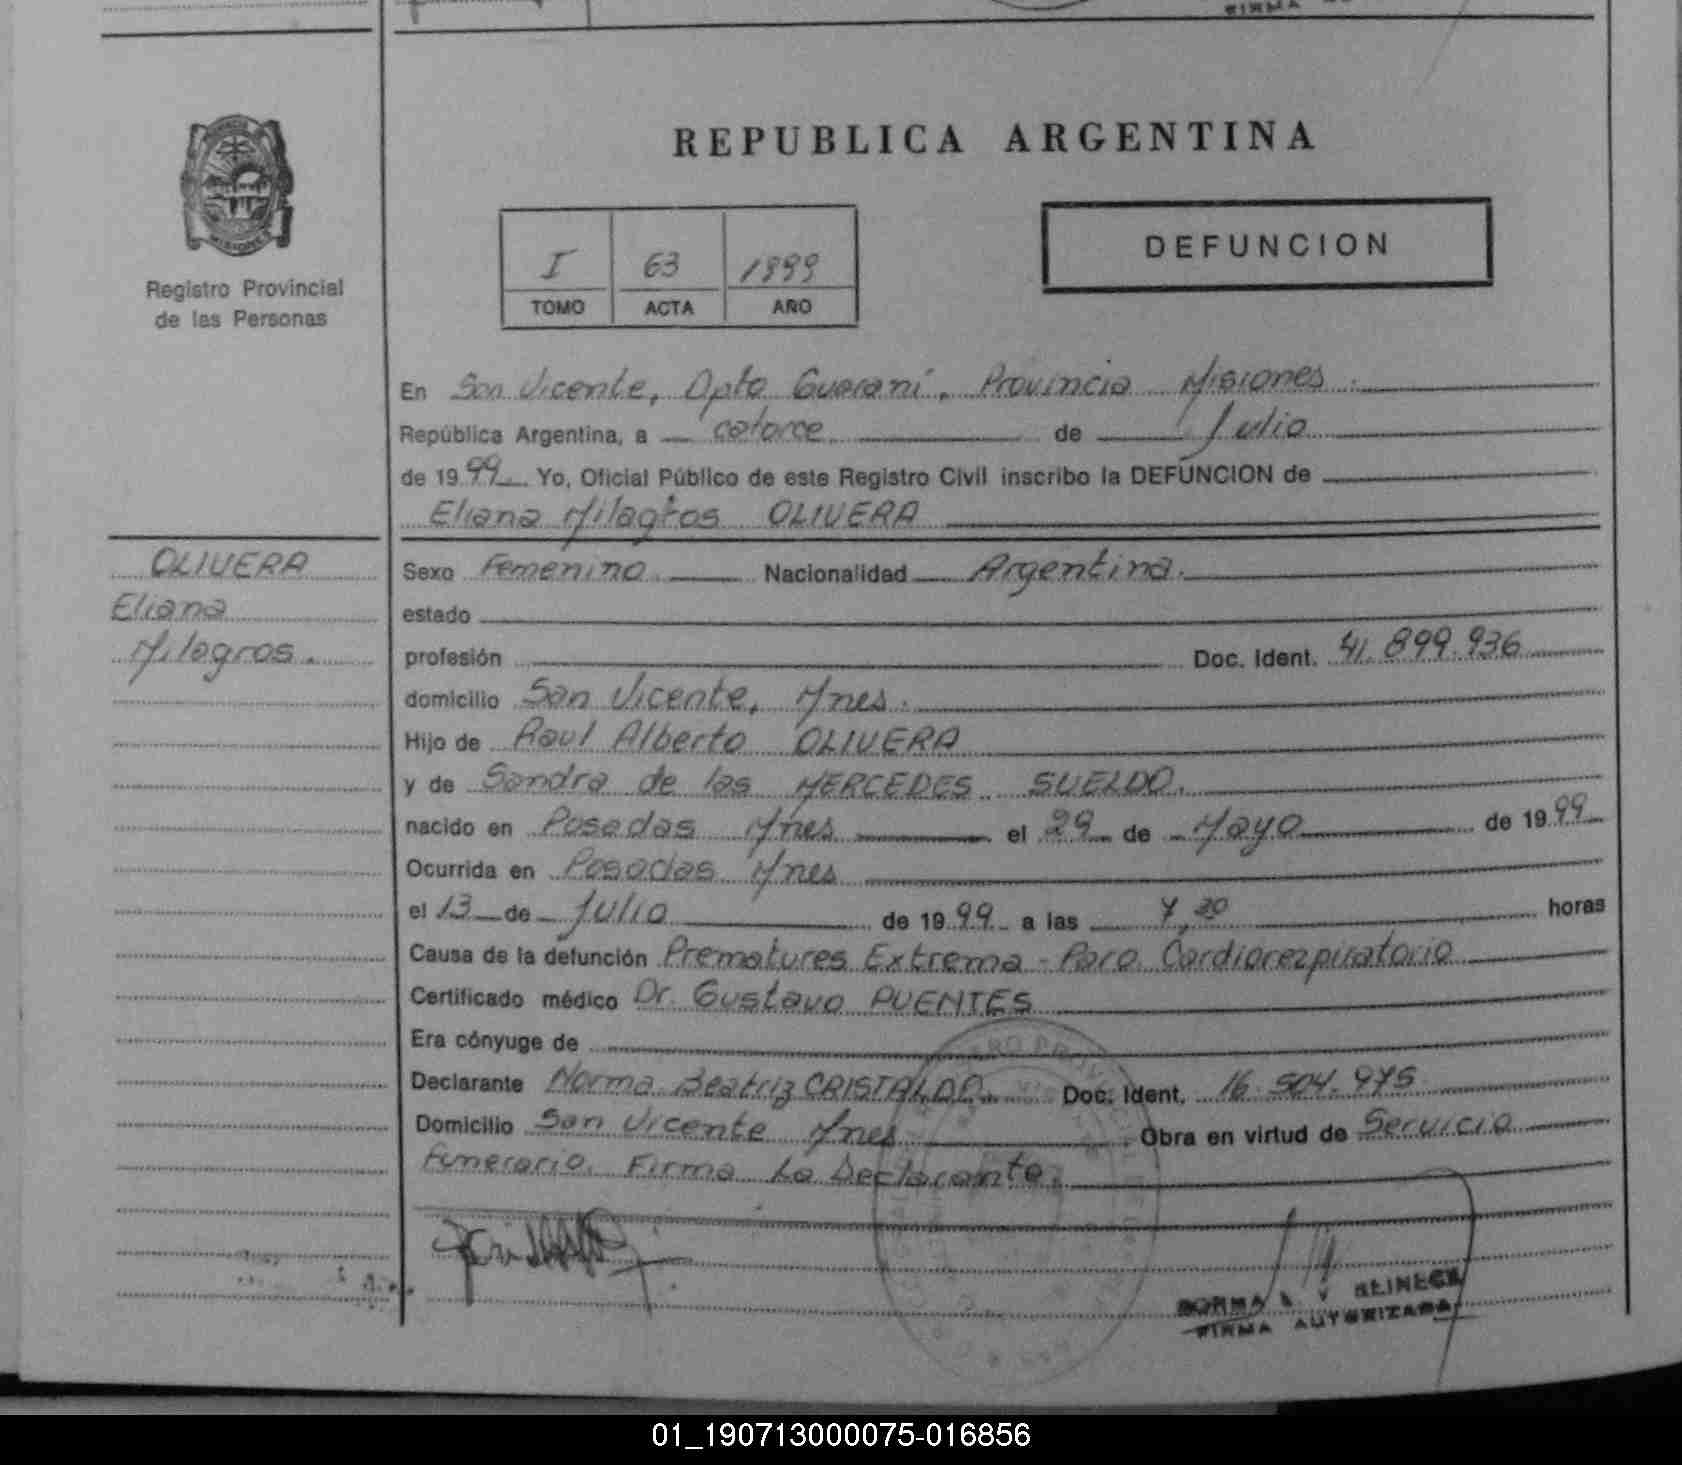 FIRMA
REPUBLICA ARGENTINA
I 63 1999
TOMO ACTA AÑO
DEFUNCION
MISIONES
Registro Provincial
de las Personas
En San Vicente, Dpto Guarani, Provincia Misiones.
República Argentina, a catorce de Julio
de 1999 Yo, Oficial Público de este Registro Civil inscribo la DEFUNCION de
Eliana Milagros OLIVERA
OLIVERA
Eliana
Milagros.
Sexo Femenino Nacionalidad Argentina.
estado
profesión Doc. Ident. 41.899.936
domicilio San Vicente, Mnes.
Hijo de Raul Alberto OLIVERA
y de Sandra de las MERCEDES SUELDO.
nacido en Posadas Mnes el 29 de Mayo de 1999
Ocurrida en Posadas Mnes
el 13 de Julio de 1999 a las 7,30 horas
Causa de la defunción Prematures Extrema - Paro Cardiorezpiratorio
Certificado médico Dr. Gustavo PUENTES
Era cónyuge de
Declarante Norma Beatriz CRISTALDO. Doc. Ident. 16.504.975
Domicilio San Vicente Mnes Obra en virtud de Servicio
Funerario. Firma La Declarante.
NORMA REINECK
FIRMA AUTORIZADA
01_190713000075-016856